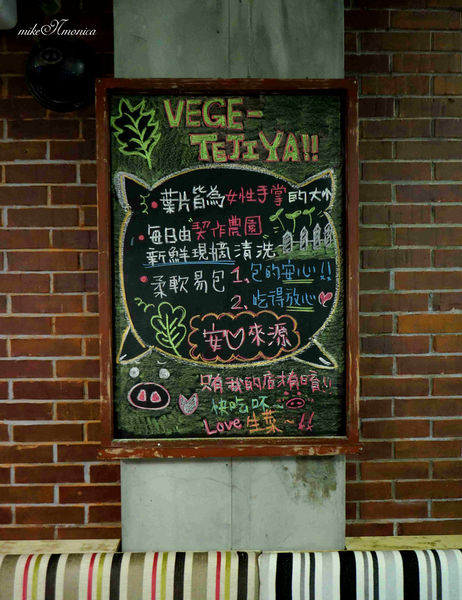 mike N monica
VEGE-
TEJIYA!!
葉片皆為女性手掌的大小
每日由"契作農園"
新鮮現摘清洗
柔軟易包 1、包的安心!!
2、吃得放心
安心來源
只有我的店才有唷!!
快吃吥~
Love 生菜~!!